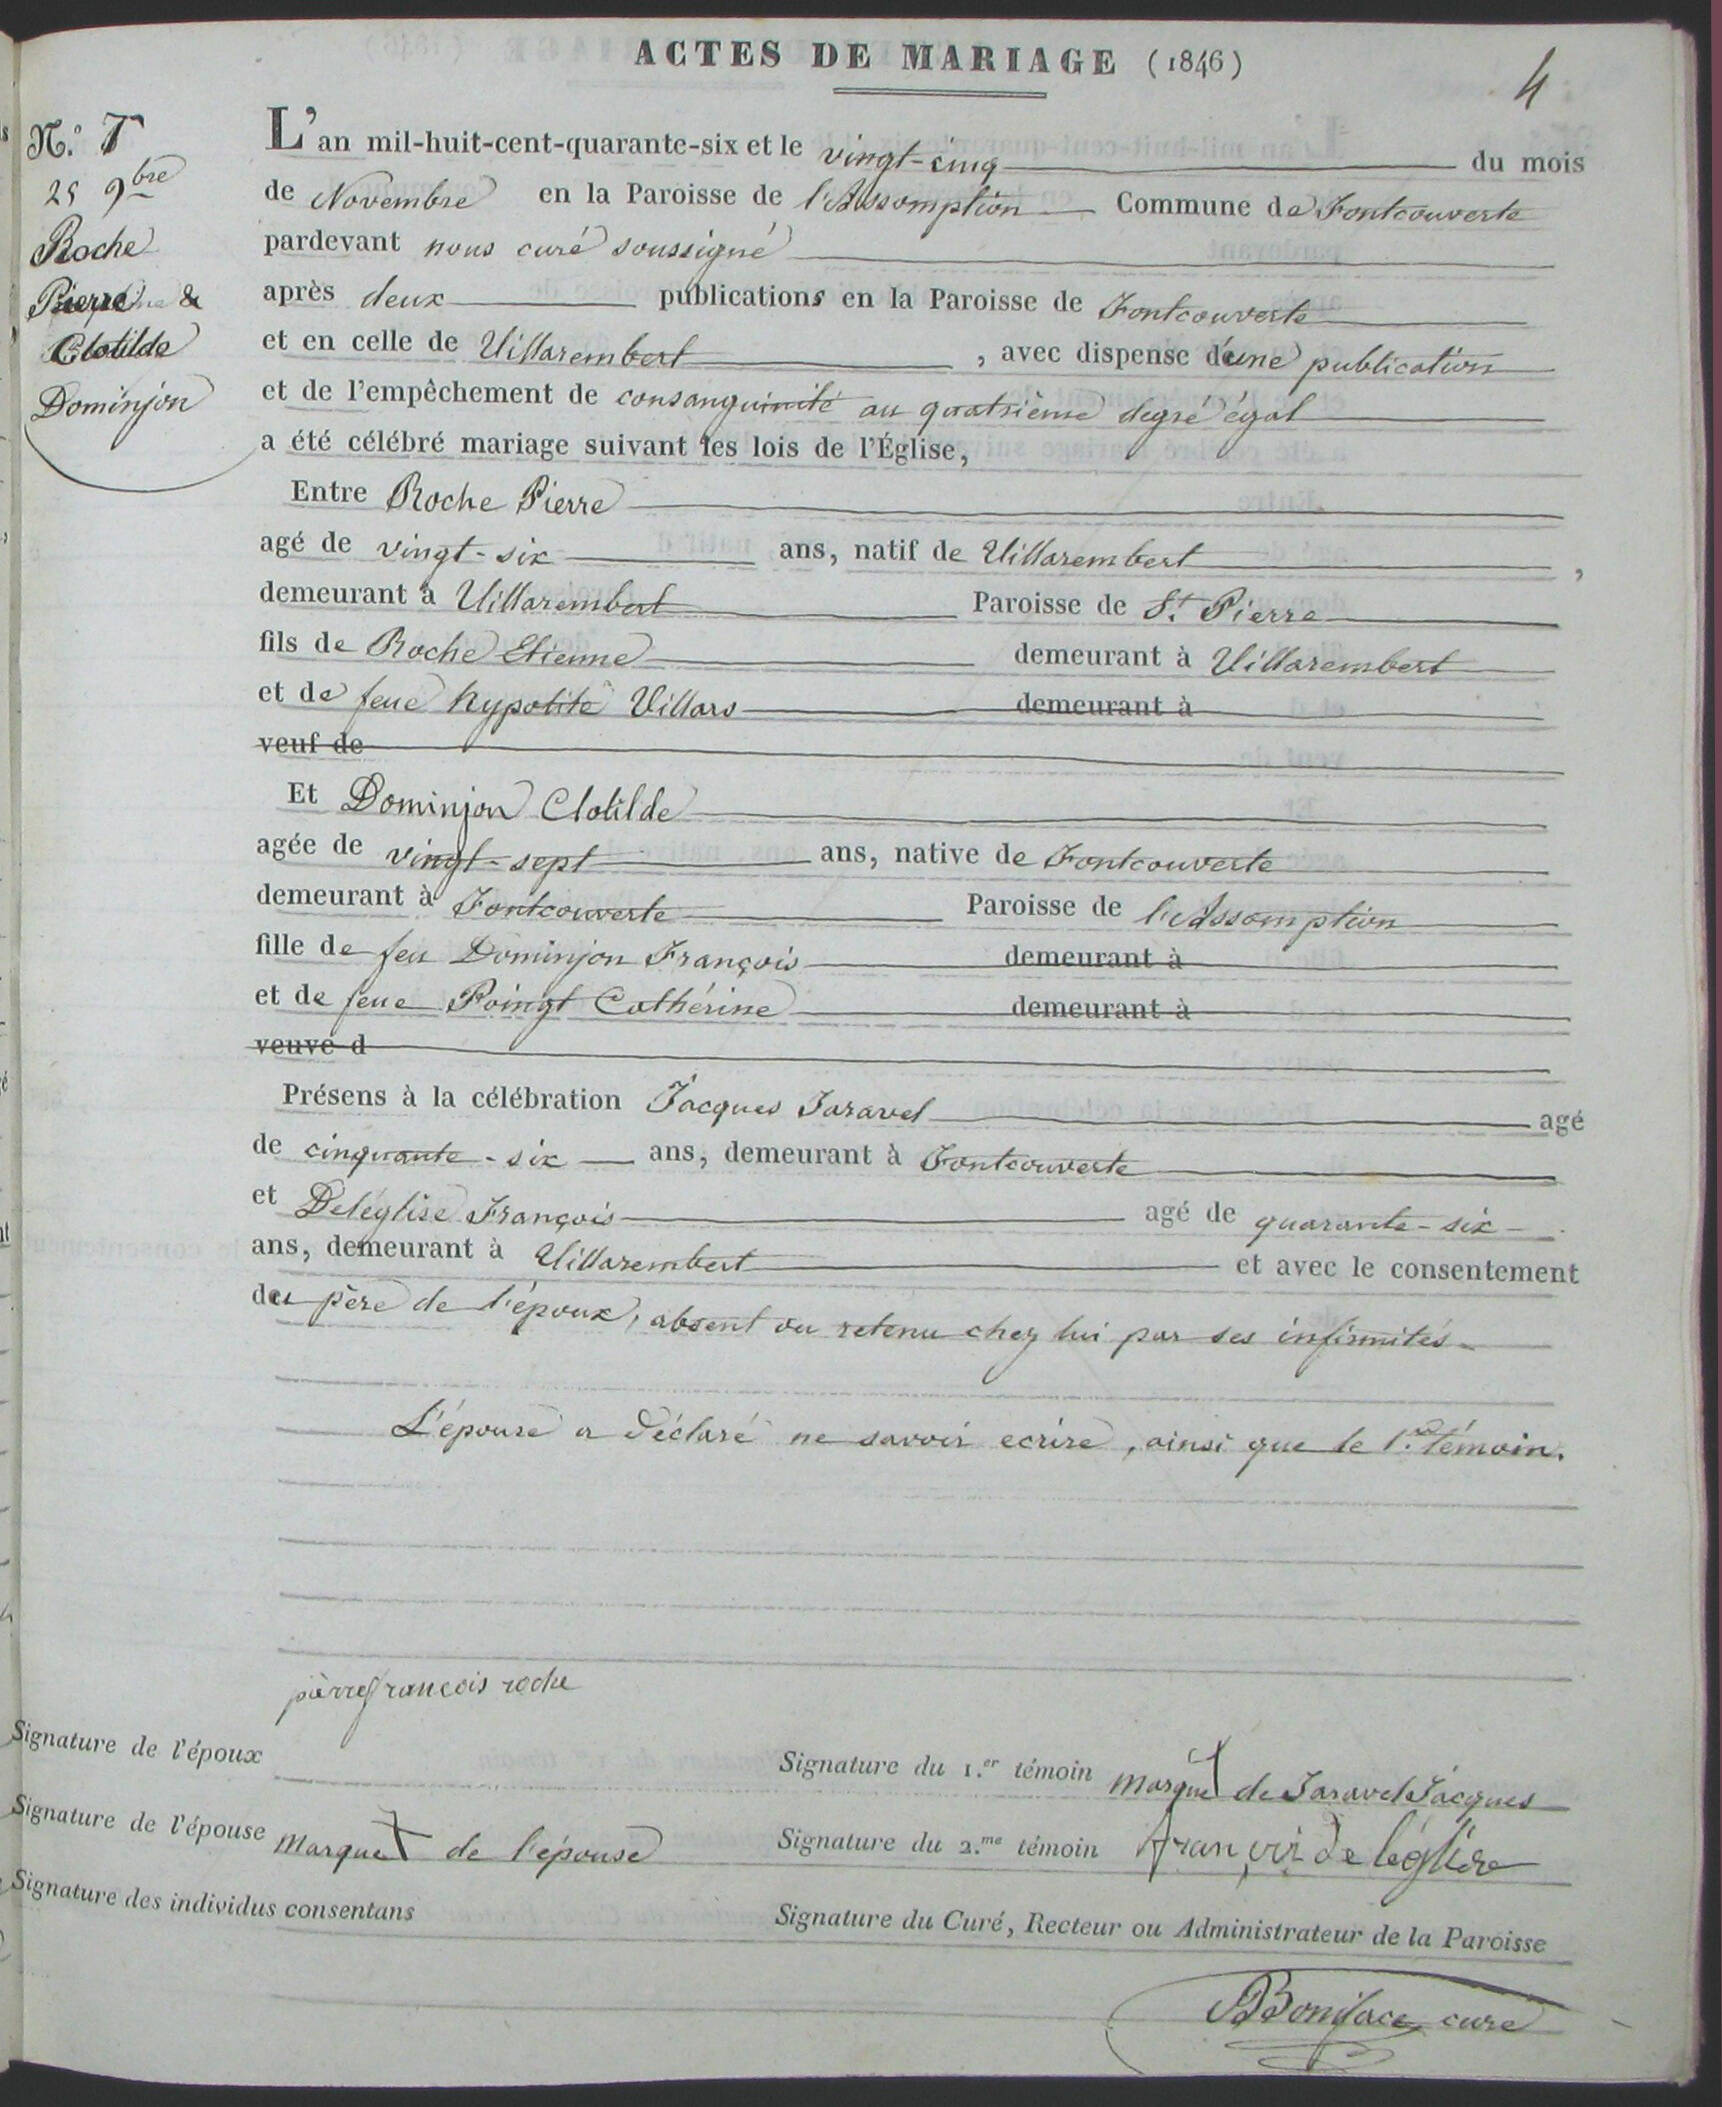 ACTES DE MARIAGE (1846)
4
N.º 7
25 9bre
Roche
Pierre &
Clotilde
Dominjon
L'an mil-huit-cent-quarante-six et le vingt-cinq du mois
de Novembre en la Paroisse de l'Assomption Commune de Fontcouverte
pardevant nous curé soussigné
après deux publications en la Paroisse de Fontcouverte
et en celle de Villarembert, avec dispense d'une publication
et de l'empêchement de consanguinité au quatrième degré égal
a été célébré mariage suivant les lois de l'Église,
Entre Roche Pierre
agé de vingt-six ans, natif de Villarembert,
demeurant à Villarembert Paroisse de St. Pierre
fils de Roche Etienne demeurant à Villarembert
et de feue hypolite Villars demeurant à
veuf de
Et Dominjon Clotilde
agée de vingt-sept ans, native de Fontcouverte
demeurant à Fontcouverte Paroisse de l'Assomption
fille de feu Dominjon François demeurant à
et de feue Poingt Cathérine demeurant à
veuve d
Présens à la célébration Jacques Jaravel agé
de cinquante-six ans, demeurant à Fontcouverte
et Deléglise François agé de quarante-six
ans, demeurant à Villarembert et avec le consentement
du père de l'époux, absent ou retenu chez lui par ses infirmités.
L'épouse a déclaré ne savoir ecrire, ainsi que le 1.er témoin.
pierre francois roche
Signature de l'époux
Signature du 1.er témoin Marque de Jaravel Jacques
Signature de l'épouse Marque de l'épouse
Signature du 2.me témoin françois de léglise
Signature des individus consentans
Signature du Curé, Recteur ou Administrateur de la Paroisse
Boniface curé